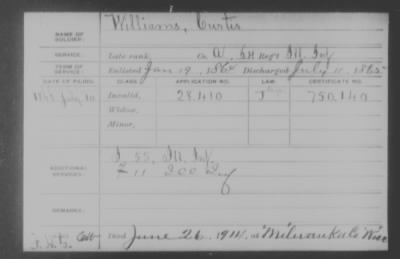 NAME OF SOLDIER: Williams, Curtis
SERVICE: Late rank, Co. A, Reg't Ill Inf
TERM OF SERVICE: Enlisted Jan 19, 186 Discharged July 11, 1865
DATE OF FILING. CLASS. APPLICATION NO. LAW. CERTIFICATE NO.
July 10 Invalid, 28.410 750.140
Widow,
Minor,
ADDITIONAL SERVICES: I 55, Ill. Inf.
REMARKS:
Died June 26, 1914, at Milwaukee Wisc